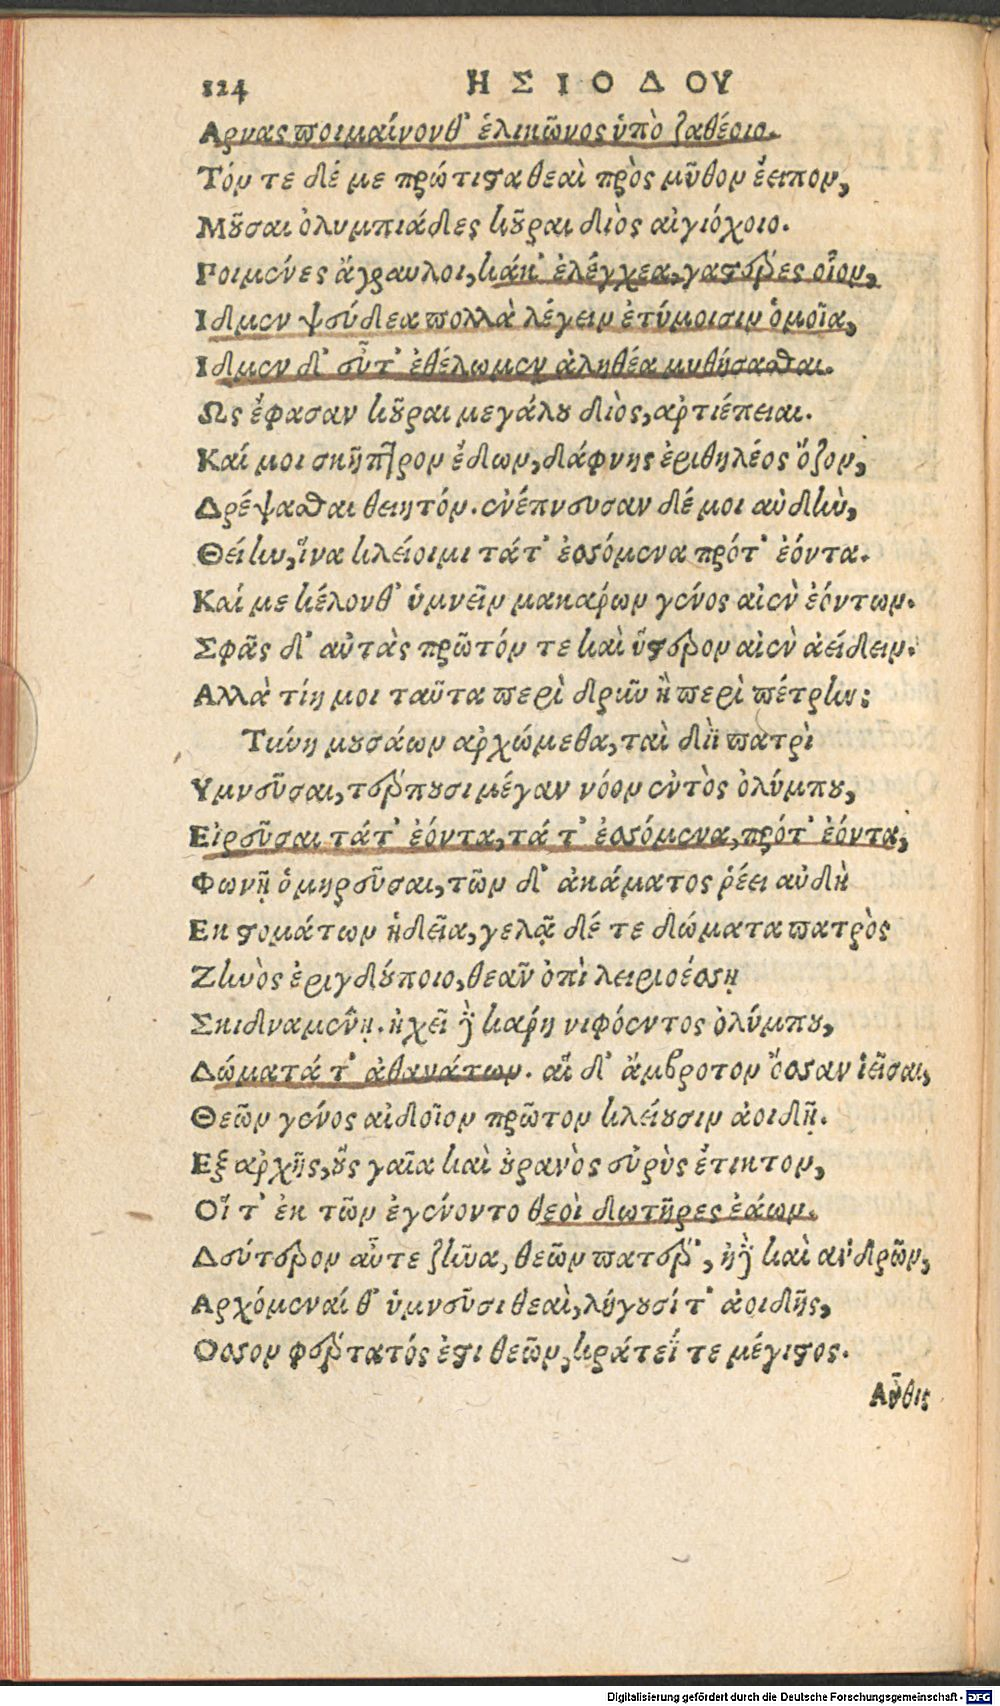 124 ΗΣΙΟΔΟΥ
Αρνας ποιμαίνονθ' ἑλικῶνος ὑπὸ ζαθέοιο.
Τόν τε δέ με πρώτιστα θεαὶ πρὸς μῦθον ἔειπον,
Μοῦσαι ὀλυμπιάδες κοῦραι διὸς αἰγιόχοιο.
Ροιμένες ἄγραυλοι, κάκ' ἐλέγχεα, γαστέρες οἶον,
Ιδμεν ψεύδεα πολλὰ λέγειν ἐτύμοισιν ὁμοῖα,
Ιδμεν δ' εὖτ' ἐθέλωμεν ἀληθέα μυθήσασθαι.
Ως ἔφασαν κοῦραι μεγάλου διὸς, ἀρτιέπειαι.
Καί μοι σκῆπτρον ἔδων, δάφνης ἐριθηλέος ὄζον,
Δρέψασθαι θειητόν. ἐνέπνευσαν δέ μοι αὐδὴν,
Θείην, ἵνα κλείοιμι τάτ' ἐσσόμενα πρότ' ἐόντα.
Καί με κέλονθ' ὑμνεῖν μακάρων γένος αἰὲν ἐόντων.
Σφᾶς δ' αὐτὰς πρῶτόν τε καὶ ὕστερον αἰὲν ἀείδειν.
Αλλὰ τίη μοι ταῦτα περὶ δρῦν ἢ περὶ πέτρην;
Τύνη μουσάων ἀρχώμεθα, ταὶ διῒ πατρὶ
Υμνεῦσαι, τέρπουσι μέγαν νόον ἐντὸς ὀλύμπου,
Εἰρεῦσαι τάτ' ἐόντα, τά τ' ἐσσόμενα, πρότ' ἐόντα,
Φωνῇ ὁμηρεῦσαι, τῶν δ' ἀκάματος ῥέει αὐδὴ
Εκ στομάτων ἡδεῖα, γελᾷ δέ τε δώματα πατρὸς
Ζηνὸς ἐριγδούποιο, θεᾶν ὀπὶ λειριοέσσῃ
Σκιδναμένῃ. ἠχεῖ δὲ κάρη νιφόεντος ὀλύμπου,
Δώματά τ' ἀθανάτων. αἳ δ' ἄμβροτον ὄσσαν ἱεῖσαι,
Θεῶν γένος αἰδοῖον πρῶτον κλείουσιν ἀοιδῇ.
Εξ ἀρχῆς, οὓς γαῖα καὶ οὐρανὸς εὐρὺς ἔτικτον,
Οἵ τ' ἐκ τῶν ἐγένοντο θεοὶ δωτῆρες ἐάων.
Δεύτερον αὖτε ζῆνα, θεῶν πατέρ', ἠδὲ καὶ ἀνδρῶν,
Αρχόμεναί θ' ὑμνεῦσι θεαὶ, λήγουσί τ' ἀοιδῆς,
Οσσον φέρτατός ἐστι θεῶν, κράτεΐ τε μέγιστος.
Αὖθις
Digitalisierung gefördert durch die Deutsche Forschungsgemeinschaft - DFG